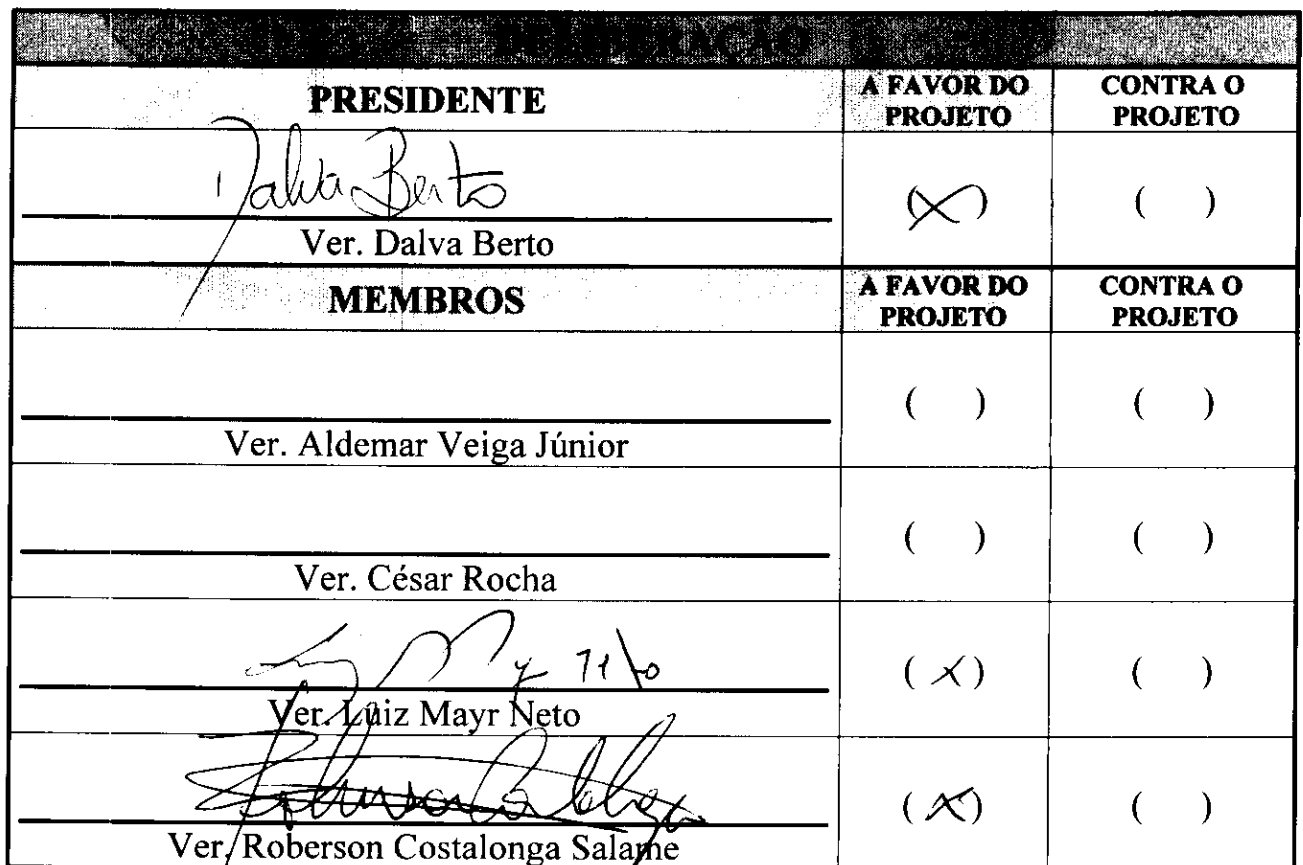 DELIBERAÇÃO
PRESIDENTE A FAVOR DO PROJETO CONTRA O PROJETO
Dalva Berto
Ver. Dalva Berto (X) ( )
MEMBROS A FAVOR DO PROJETO CONTRA O PROJETO
Ver. Aldemar Veiga Júnior ( ) ( )
Ver. César Rocha ( ) ( )
Ver. Luiz Mayr Neto (X) ( )
Ver. Roberson Costalonga Salame (X) ( )